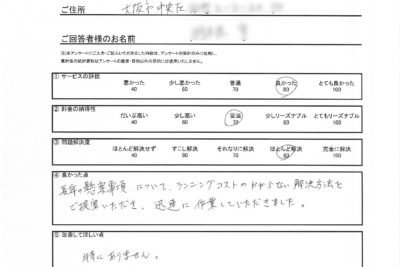 ご住所 大阪市中央区
ご回答者様のお名前
① サービスの評価 悪かった 少し悪かった 普通 良かった とても良かった
40 60 70 80 100
② 料金の納得性 だいぶ高い 少し高い 妥当 少しリーズナブル とてもリーズナブル
40 60 70 80 100
③ 問題解決度 ほとんど解決せず すこし解決 それなりに解決 ほとんど解決 完全に解決
40 60 70 80 100
④ 良かった点
長年の懸案事項について、ランニングコストのかからない解決方法を
ご提案いただき、迅速に作業していただきました。
⑤ 改善してほしい点
特にありません。